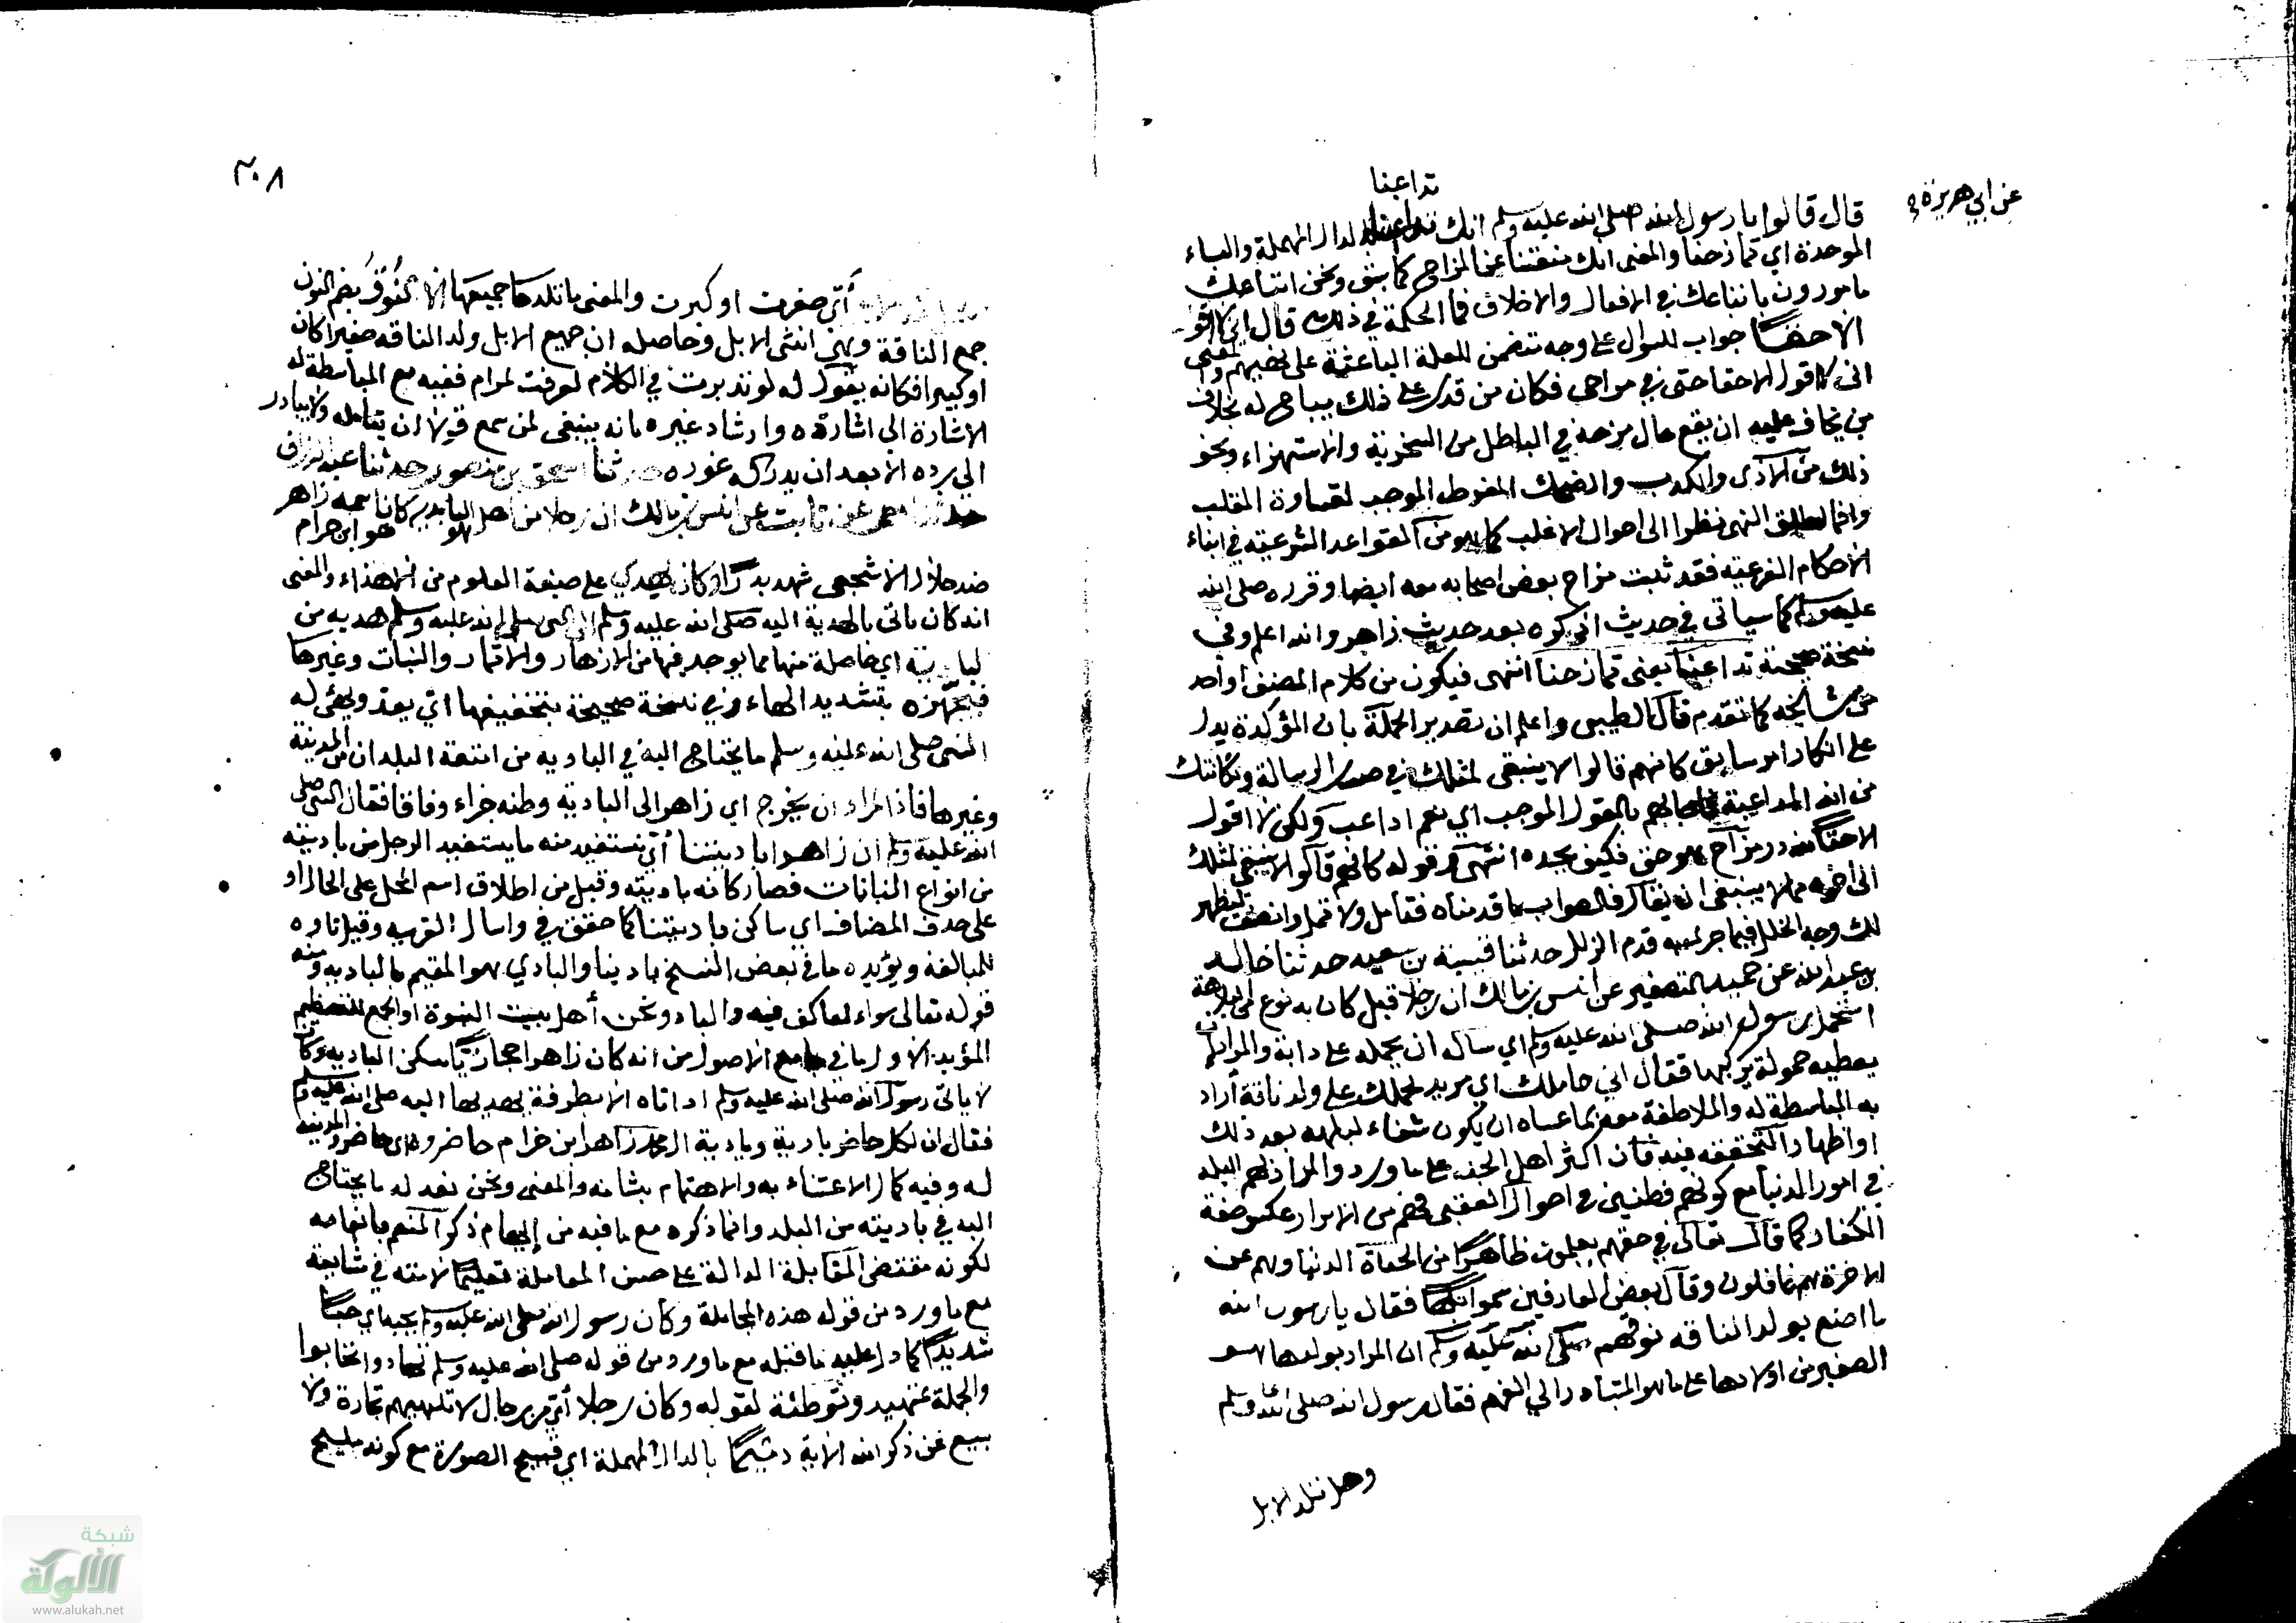 عن ابي هريرة
تداعبنا
قال قالوا يا رسول الله صلى الله عليه وسلم انك تداعبنا بالدال المهملة والباء
الموحدة اي تمازحنا والمعنى انك منعتنا عن المزاح كما سبق ونحن اتباعك
مامورون باتباعك في الافعال والاخلاق فما الحكمة في ذلك قال اني لا اقول
الا حقا جواب للسوال على وجه تتضمن للعلة الباعثة على نهيهم والمعنى
انى لا اقول الا حقا حتى في مزاحى فكان من قدر على ذلك يباح له بخلاف
من يخاف عليه ان يقع حال مزحه في الباطل من السخرية والاستهزاء ونحو
ذلك من الاذى والكذب والضحك المفرط الموجب لقساوة القلب
وانما اطلق النهى نظرا الى احوال الاغلب كما هو من القواعد الشرعية في ابناء
الاحكام الفرعية فقد ثبت مزاح بعض اصحابه معه ايضا وقرره صلى الله
عليه وسلم كما سياتى في حديث اذكره بعد حديث زاهر والله اعلم وفى
نسخة صحيحة تداعبنا يعنى تمازحنا انتهى فيكون من كلام المصنف او احد
من مشايخه كما تقدم قال الطيبى واعلم ان تصدير الجملة بان المؤكدة يدل
على انكار امر سابق كانهم قالوا لا ينبغى لمثلك في صدر الرسالة ومكانتك
من الله المداعبة فاجابهم بالقول الموجب اي نعم اداعب ولكن لا اقول
الا حقا لله در مزاح هو حق فكيف بجده انتهى وقوله كانهم قالوا لا ينبغى لمثلك
الى اخره مما لا ينبغى ان يقال فالصواب ما قدمناه فتأمل ولا تمل وانصف ليظهر
لك وجه الخلل فيما جر لسببه قدم الزلل حدثنا قتيبة بن سعيد حدثنا خالد
بن عبد الله عن حميد بالتصغير عن انس بن مالك ان رجلا قيل كان به نوع من البلاهة
استحمل رسول الله صلى الله عليه وسلم اي ساله ان يحمله على دابة والمراد ان
يعطيه حمولة يركبها فقال اني حاملك اي مريد لحملك على ولد ناقة أراد
به المباسطة له والملاطفة معه بما عساه ان يكون شفاء لبلهه بعد ذلك
او اظهارا لتحققه فيه فان اكثر اهل الجنة البله على ما ورد والمراد بهم البله
في امور الدنيا مع كونهم فطنين في احوال العقبى فهم من الابرار عكس صفة
الكفار كما قال تعالى في حقهم يعلمون ظاهرا من الحياة الدنيا وهم عن
الاخرة هم غافلون وقال بعض العارفين سموا بلها فقال يا رسول الله
ما اصنع بولد الناقة توهم صلى الله عليه وسلم ان المراد بولدها هو
الصغير من اولادها على ما هو المتبادر الى الفهم فقال رسول الله صلى الله عليه وسلم
وهل تلد الابل
٣٠٨
أي صغرت او كبرت والمعنى ما تلدها جميعها الا النوق بضم النون
جمع الناقة وهي انثى الابل وحاصله ان جميع الابل ولد الناقة صغيرا كان
او كبيرا فكانه يقول له لو تدبرت في الكلام لعرفت المرام ففيه مع المباسطة له
الاشارة الى ارشاده وارشاد غيره بانه ينبغى لمن سمع قولا ان يتأمله ولا يبادر
الى رده الا بعد ان يدرك غوره حدثنا اسحق بن منصور حدثنا عبد الرزاق
حدثنا معمر عن ثابت عن انس بن مالك ان رجلا من اهل البادية كان اسمه زاهر
هو ابن حرام
ضد حلال الاشجعى شهد بدرا وكان يهدى على صيغة المعلوم من الاهداء والمعنى
انه كان ياتى بالهدية اليه صلى الله عليه وسلم الى النبى صلى الله عليه وسلم هدية من
البادية اي حاصلة منها مما يوجد فيها من الازهار والاثمار والنبات وغيرها
فيجهزه بتشديد الهاء وفي نسخة صحيحة بتخفيفها اي يعد ويهئ له
النبى صلى الله عليه وسلم ما يحتاج اليه في البادية من امتعة البلدان من المدينة
وغيرها فاذا اراد ان يخرج اي زاهر الى البادية وطنه جزاء وفاقا فقال النبى صلى
الله عليه وسلم ان زاهرا باديتنا أي نستفيد منه ما يستفيد الرجل من باديته
من انواع النباتات فصار كانه باديته وقيل من اطلاق اسم المحل على الحال او
على حذف المضاف اي ساكن باديتنا كما حقق في واسال القرية وقيل تاوه
للمبالغة ويؤيده ما في بعض النسخ بادينا والبادي هو المقيم بالبادية ومنه
قوله تعالى سواء العاكف فيه والباد ونحن أهل بيت النبوة او الجمع للتعظيم
المؤيد الاول ما في جامع الاصول من انه كان زاهر حجازيا يسكن البادية وكان
لا ياتى رسول الله صلى الله عليه وسلم اذا اتاه الا بطرفة يهديها اليه صلى الله عليه وسلم
فقال ان لكل حاضر بادية وبادية ال محمد زاهر ابن حرام حاضروه اي حاضروا المدينة
له وفيه كمال الاعتناء به والاهتمام بشانه والمعنى ونحن نعد له ما يحتاج
اليه في باديته من البلد وانما ذكره مع ما فيه من إيهام ذكر المنعم بانعامه
لكونه مقتضى المقابلة الدالة على حسن المعاملة تعليما لامته في متابعة
مع ما ورد من قوله هذه المجاملة وكان رسول الله صلى الله عليه وسلم يحبه اي حبا
شديدا كما دل عليه ما قبله مع ما ورد من قوله صلى الله عليه وسلم تهادوا تحابوا
والجملة تمهيد وتوطئة لقوله وكان رجلا أي من رجال لا تلهيهم تجارة ولا
بيع عن ذكر الله الاية دميما بالدال المهملة اي قبيح الصورة مع كونه مليح
شبكة
الألوكة
www.alukah.net